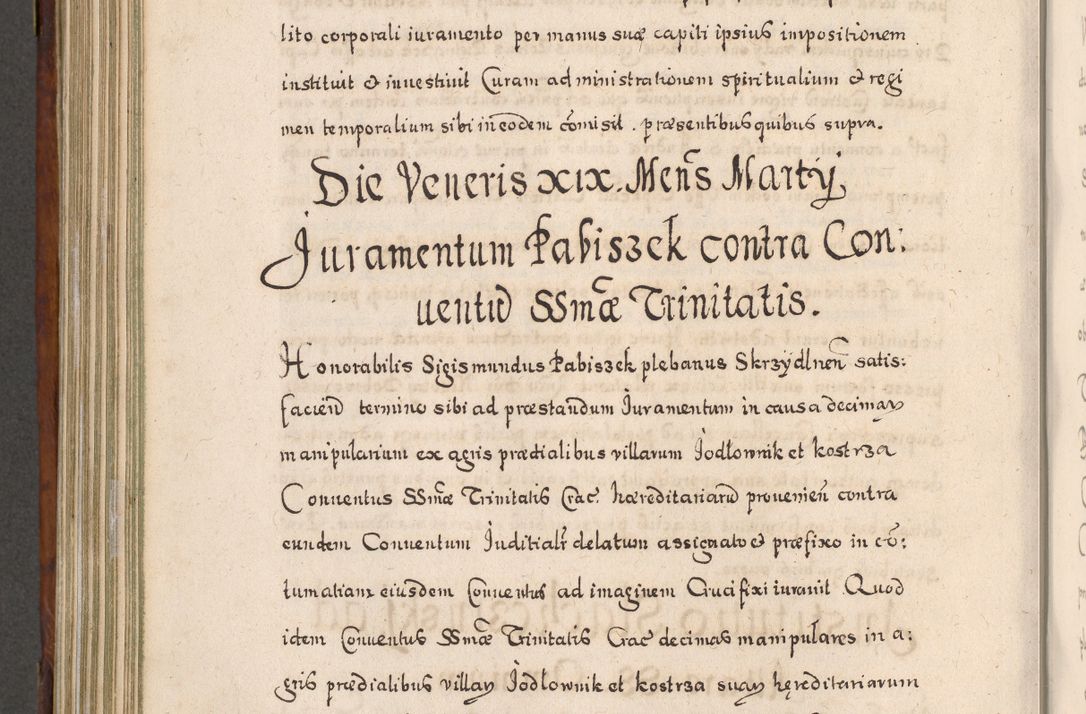 lito corporali iuramento per manus suæ capiti ipsius impositionem
instituit & inuestiuit Curam administrationem spiritualium & regi
men temporalium sibi in eodem cõmisit. præsentibus quibus supra.
Die Veneris XIX. Meñs Martÿ
Juramentum Pabiszek contra Con:
uentũ SSmæ Trinitatis.
Honorabilis Sigismundus Pabiszek plebanus Skrzÿdlneñ satis:
facieñ termino sibi ad præstandum Juramentum in causa decimaꝝ
manipularium ex agris prædialibus villarum Jodłownik et kostrza
Conuentus SSmæ Trinitatis Crac̃ hæreditariarũ prouenieñ contra
eundem Conuentum Juditialr̃ delatum assignato et præfixo in cõ:
tumatiam eiusdem Conuentus ad imaginem Crucifixi iurauit Quod
idem Conuentus SSmæ Trinitatis Crac̃ decimas manipulares in a:
gris prædialibus villaꝝ Jodłownik et kostrza suaꝝ hęreditariarum